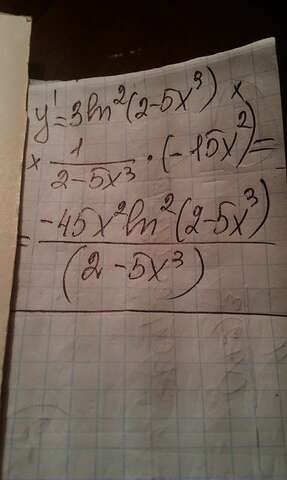 y' = 3ln²(2-5x³) ×
× 1/(2-5x³) · (-15x²) =
= -45x²ln²(2-5x³)/(2-5x³)